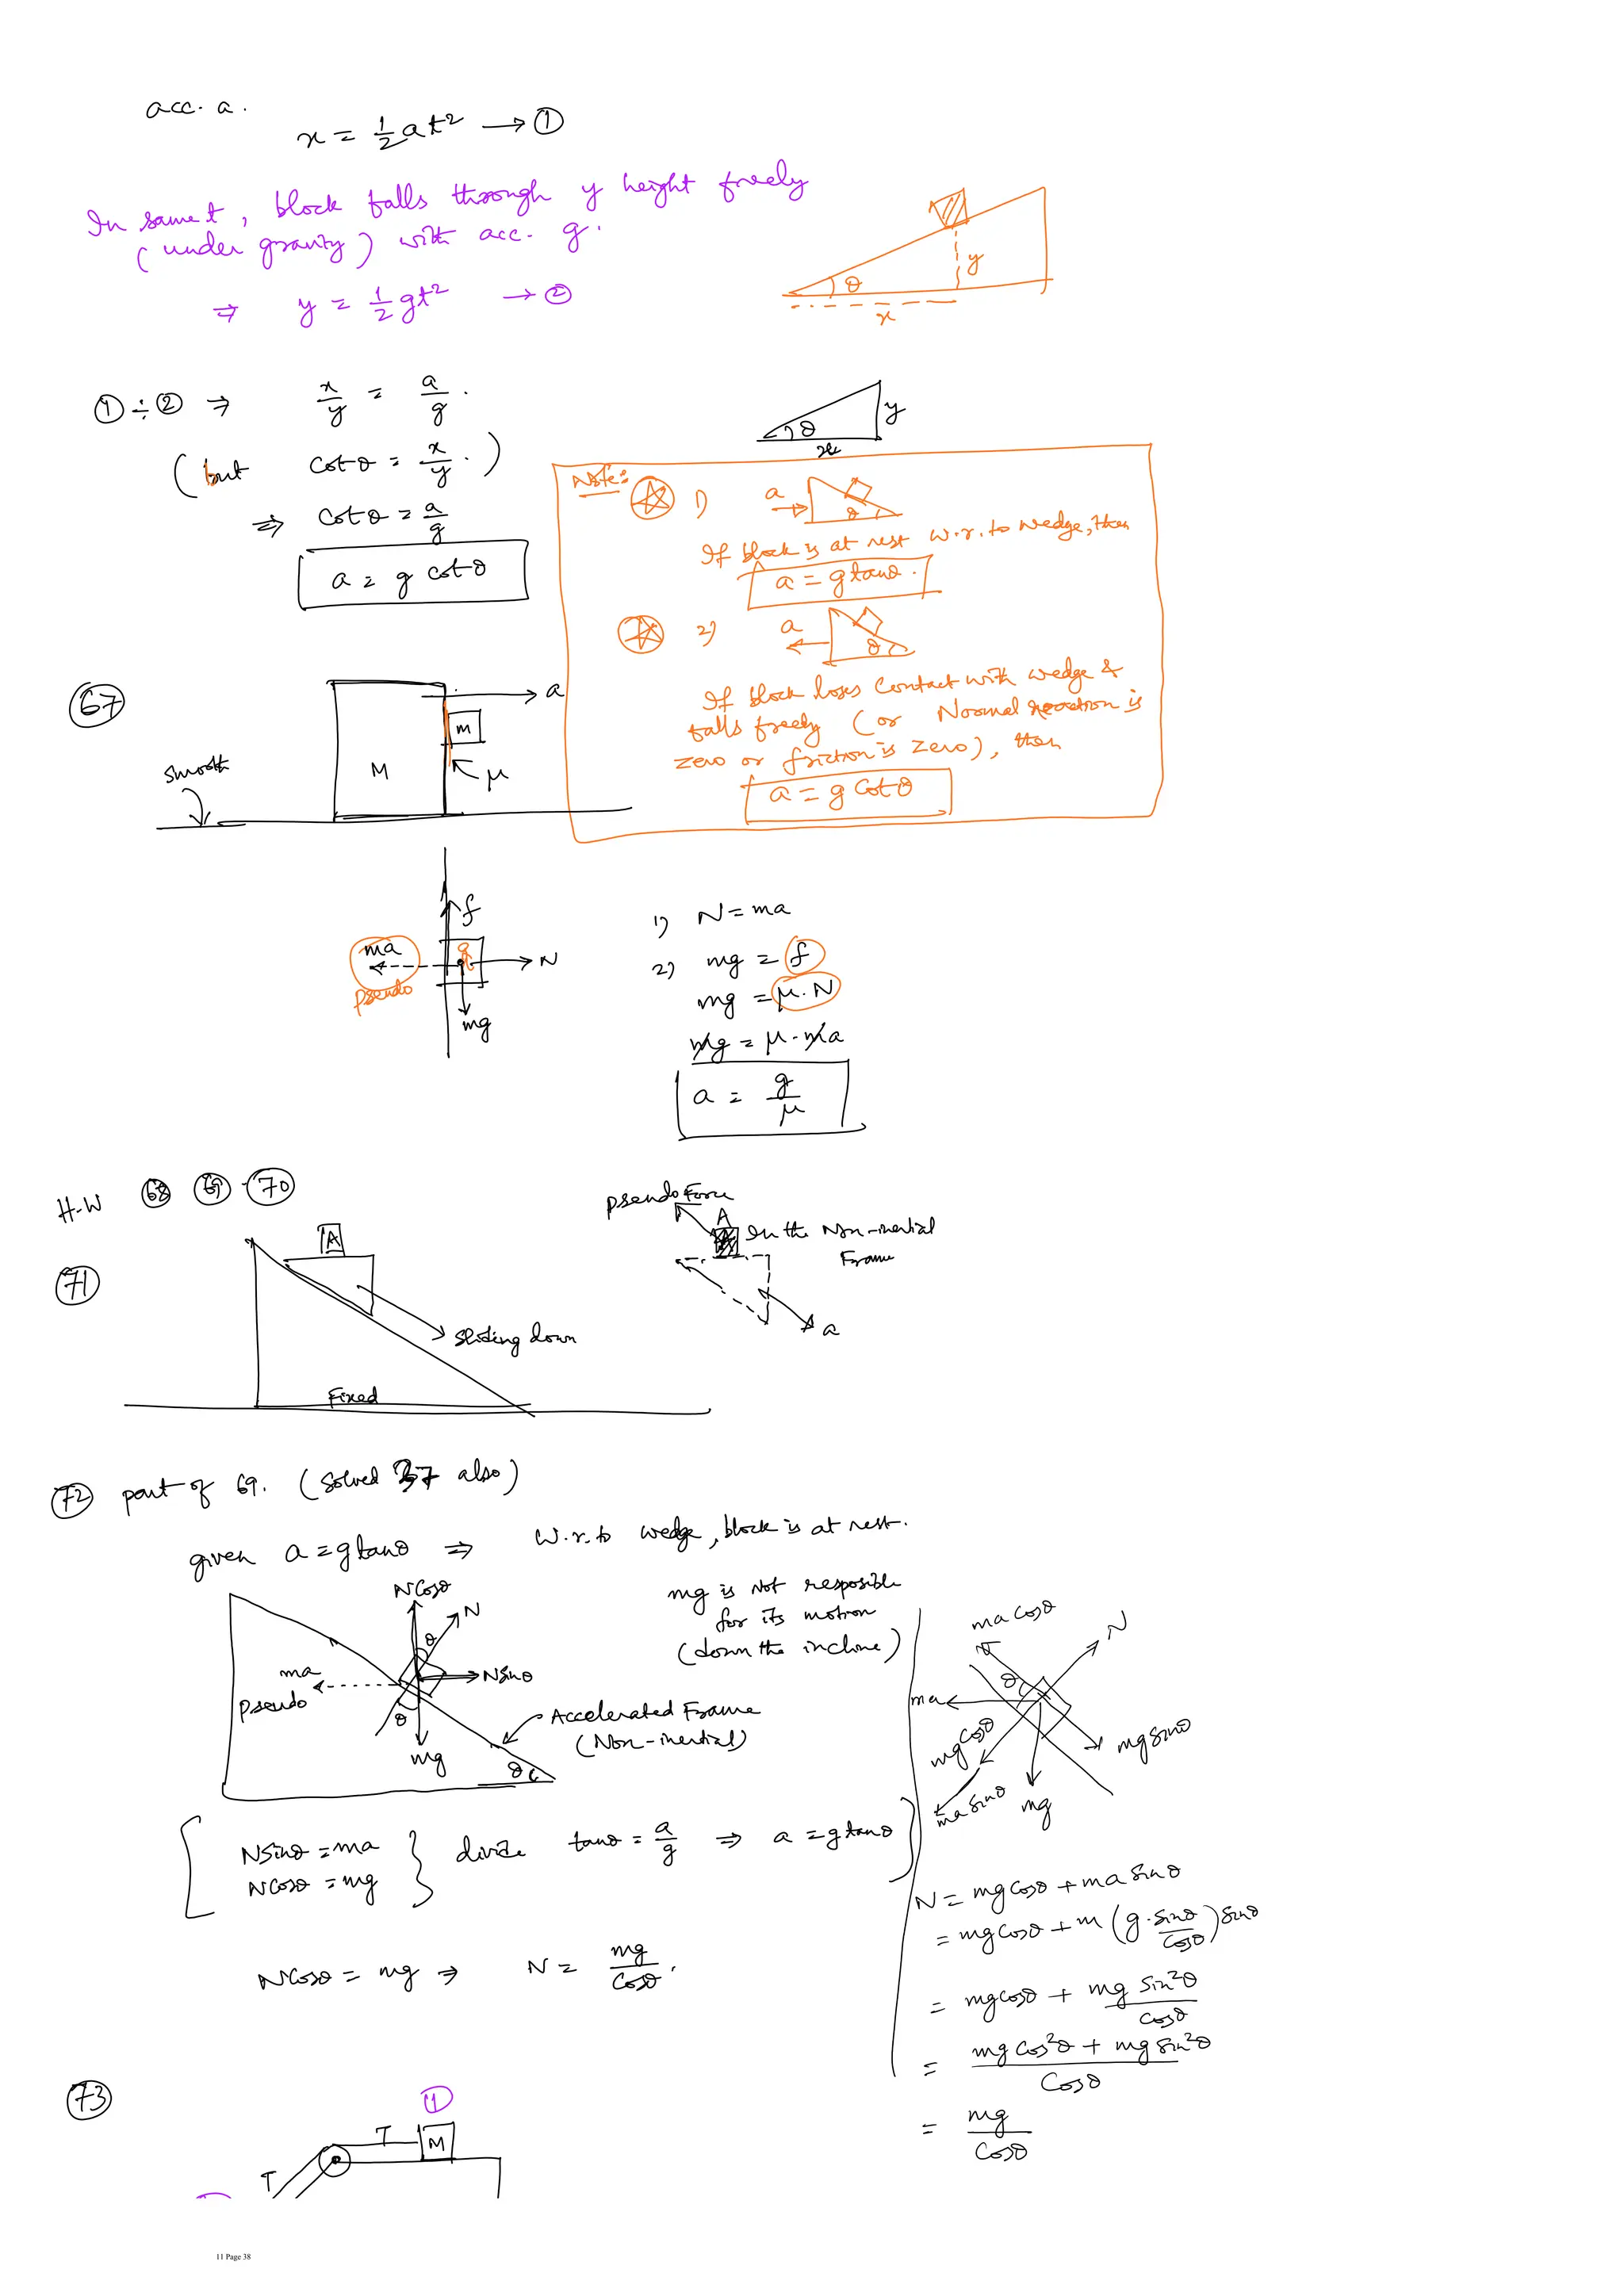 acc. a.
x = 1/2 at² → ①
In same t, block falls through y height freely
(under gravity) with acc. g.
⇒ y = 1/2 gt² → ②
y
θ
x
① ÷ ② ⇒ x/y = a/g.
(but cot θ = x/y.)
⇒ cot θ = a/g
a = g cot θ
θ
y
x
Note:
1) a θ
If block is at rest w.r.to wedge, then
a = g tanθ.
2) a θ
If block loses contact with wedge &
falls freely (or Normal reaction is
zero or friction is zero), then
a = g cot θ
67
a
m
M
μ
smooth
f
ma
N
pseudo
mg
1) N = ma
2) mg = f
mg = μ.N
mg = μ.ma
a = g/μ
H.W 68 69 70
71
A
sliding down
Fixed
pseudo Force
A
In the Non-inertial
Frame
a
72 part of 69. (solved 37 also)
given a = g tanθ ⇒ w.r.to wedge, block is at rest.
mg is not resposible
for its motion
(down the incline)
N cosθ
N
θ
ma
N sinθ
pseudo
θ
mg
Accelerated Frame
(Non-inertial)
θ
ma cosθ
N
θ
ma
mg cosθ
mg sinθ
ma sinθ
mg
N sinθ = ma
N cosθ = mg
divide tanθ = a/g ⇒ a = g tanθ
N cosθ = mg ⇒ N = mg/cosθ.
N = mg cosθ + ma sinθ
= mg cosθ + m (g. sinθ/cosθ) sinθ
= mg cosθ + mg sin²θ/cosθ
= mg cos²θ + mg sin²θ / cosθ
= mg/cosθ
73
1
T
M
T
11 Page 38